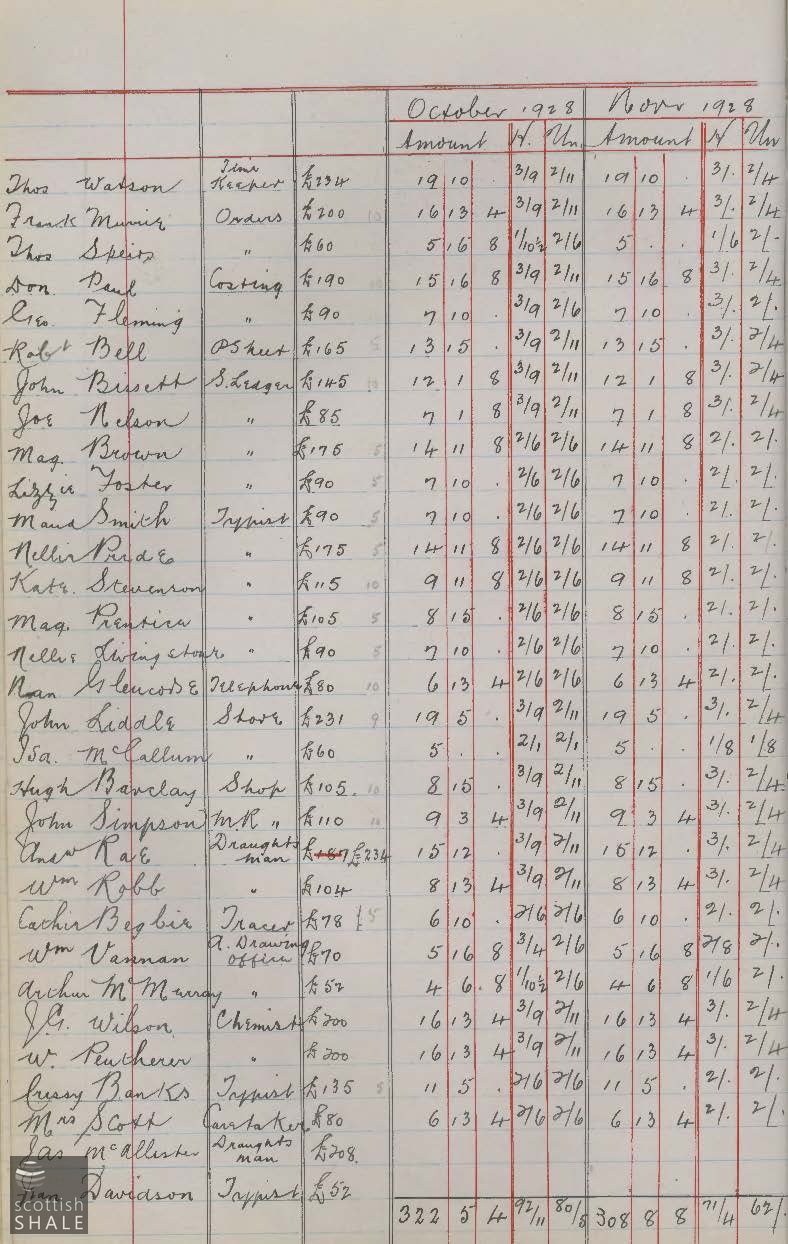 October 1928 Novr 1928
Amount H. Un. Amount H Un
Thos Watson Time Keeper £234 19 10 . 3/9 2/11 19 10 . 3/. 2/4
Frank Murrie Orders £200 10 16 13 4 3/9 2/11 16 13 4 3/. 2/4
Thos Speirs " £60 5 16 8 1/10½ 2/6 5 . . 1/6 2/-
Don. Paul Costing £190 15 16 8 3/9 2/11 15 16 8 3/. 2/4
Geo. Fleming " £90 7 10 . 3/9 2/6 7 10 . 3/. 2/.
Robt Bell P Sheet £165 5 13 15 . 3/9 2/11 13 15 . 3/. 2/4
John Bissett S. Ledger £145 10 12 1 8 3/9 2/11 12 1 8 3/. 2/4
Joe Nelson " £85 7 1 8 3/9 2/11 7 1 8 3/. 2/4
Mag. Brown " £175 5 14 11 8 2/6 2/6 14 11 8 2/. 2/.
Lizzie Foster " £90 5 7 10 . 2/6 2/6 7 10 . 2/. 2/.
Maud Smith Typist £90 5 7 10 . 2/6 2/6 7 10 . 2/. 2/.
Nellie Pride " £175 5 14 11 8 2/6 2/6 14 11 8 2/. 2/.
Kate. Stevenson " £115 10 9 11 8 2/6 2/6 9 11 8 2/. 2/.
Mag. Prentice " £105 5 8 15 . 2/6 2/6 8 15 . 2/. 2/.
Nellie Livingstone " £90 5 7 10 . 2/6 2/6 7 10 . 2/. 2/.
Nan Glencorse Telephone £80 10 6 13 4 2/6 2/6 6 13 4 2/. 2/.
John Liddle Store £231 9 19 5 . 3/9 2/11 19 5 . 3/. 2/4
Isa. McCallum " £60 5 . . 2/1 2/1 5 . . 1/8 1/8
Hugh Barclay Shop £105. 10 8 15 . 3/9 2/11 8 15 . 3/. 2/4
John Simpson M.R " £110 10 9 3 4 3/9 2/11 9 3 4 3/. 2/4
Andw Rae Draughts man £187 £234 15 12 . 3/9 2/11 15 12 . 3/. 2/4
Wm Robb " £104 8 13 4 3/9 2/11 8 13 4 3/. 2/4
Cathie Begbie Tracer £78 5 6 10 . 2/6 2/6 6 10 . 2/. 2/.
Wm Vannan A. Drawing office £70 5 16 8 3/4 2/6 5 16 8 2/8 2/.
Arthur McMurray " £52 4 6 8 1/10½ 2/6 4 6 8 1/6 2/.
J.G. Wilson Chemist £200 16 13 4 3/9 2/11 16 13 4 3/. 2/4
W. Peutherer " £200 16 13 4 3/9 2/11 16 13 4 3/. 2/4
Crissy Banks Typist £135 5 11 5 . 2/6 2/6 11 5 . 2/. 2/.
Mrs Scott Caretaker £80 6 13 4 2/6 2/6 6 13 4 2/. 2/.
Jas McAllister Draughts man £208.
Davidson Typist £52
322 5 4 92/11 80/5 308 8 8 71/4 62/.
scottish
SHALE